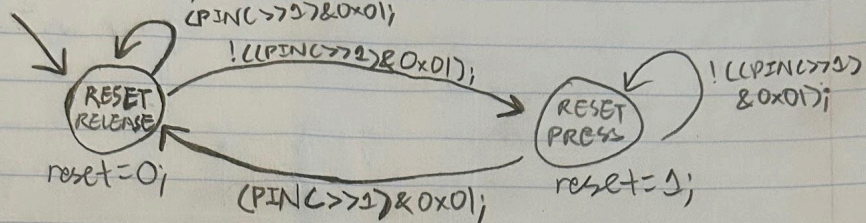 (PINC>>1)&0x01;
!((PINC>>1)&0x01);
RESET
RELEASE
reset=0;
RESET
PRESS
reset=1;
!((PINC>>1)
&0x01);
(PINC>>1)&0x01;